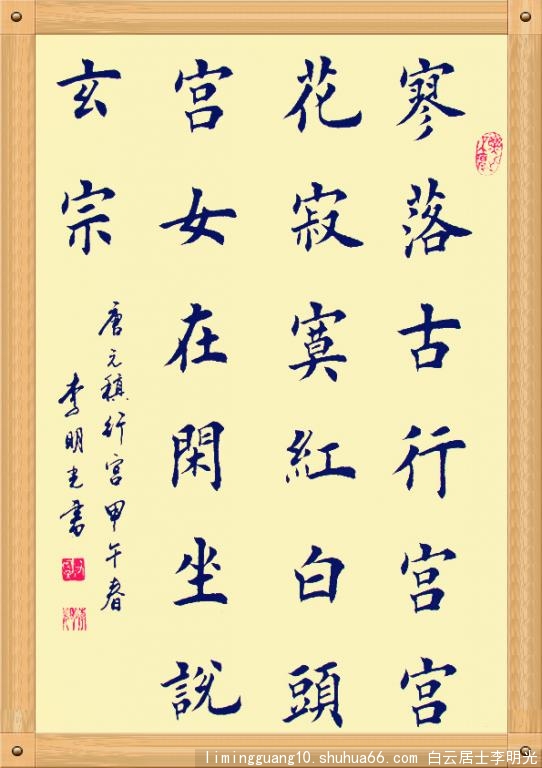 寥落古行宮宮
花寂寞紅白頭
宮女在閑坐説
玄宗
唐元稹行宮甲午春
李明光書
limingguang10.shuhua66.com 白云居士李明光